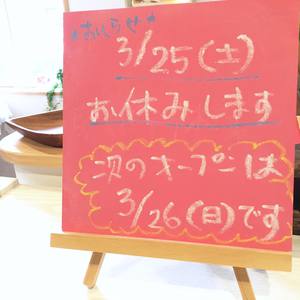 おしらせ
3/25(土)
お休みします
次のオープンは
3/26(日)です